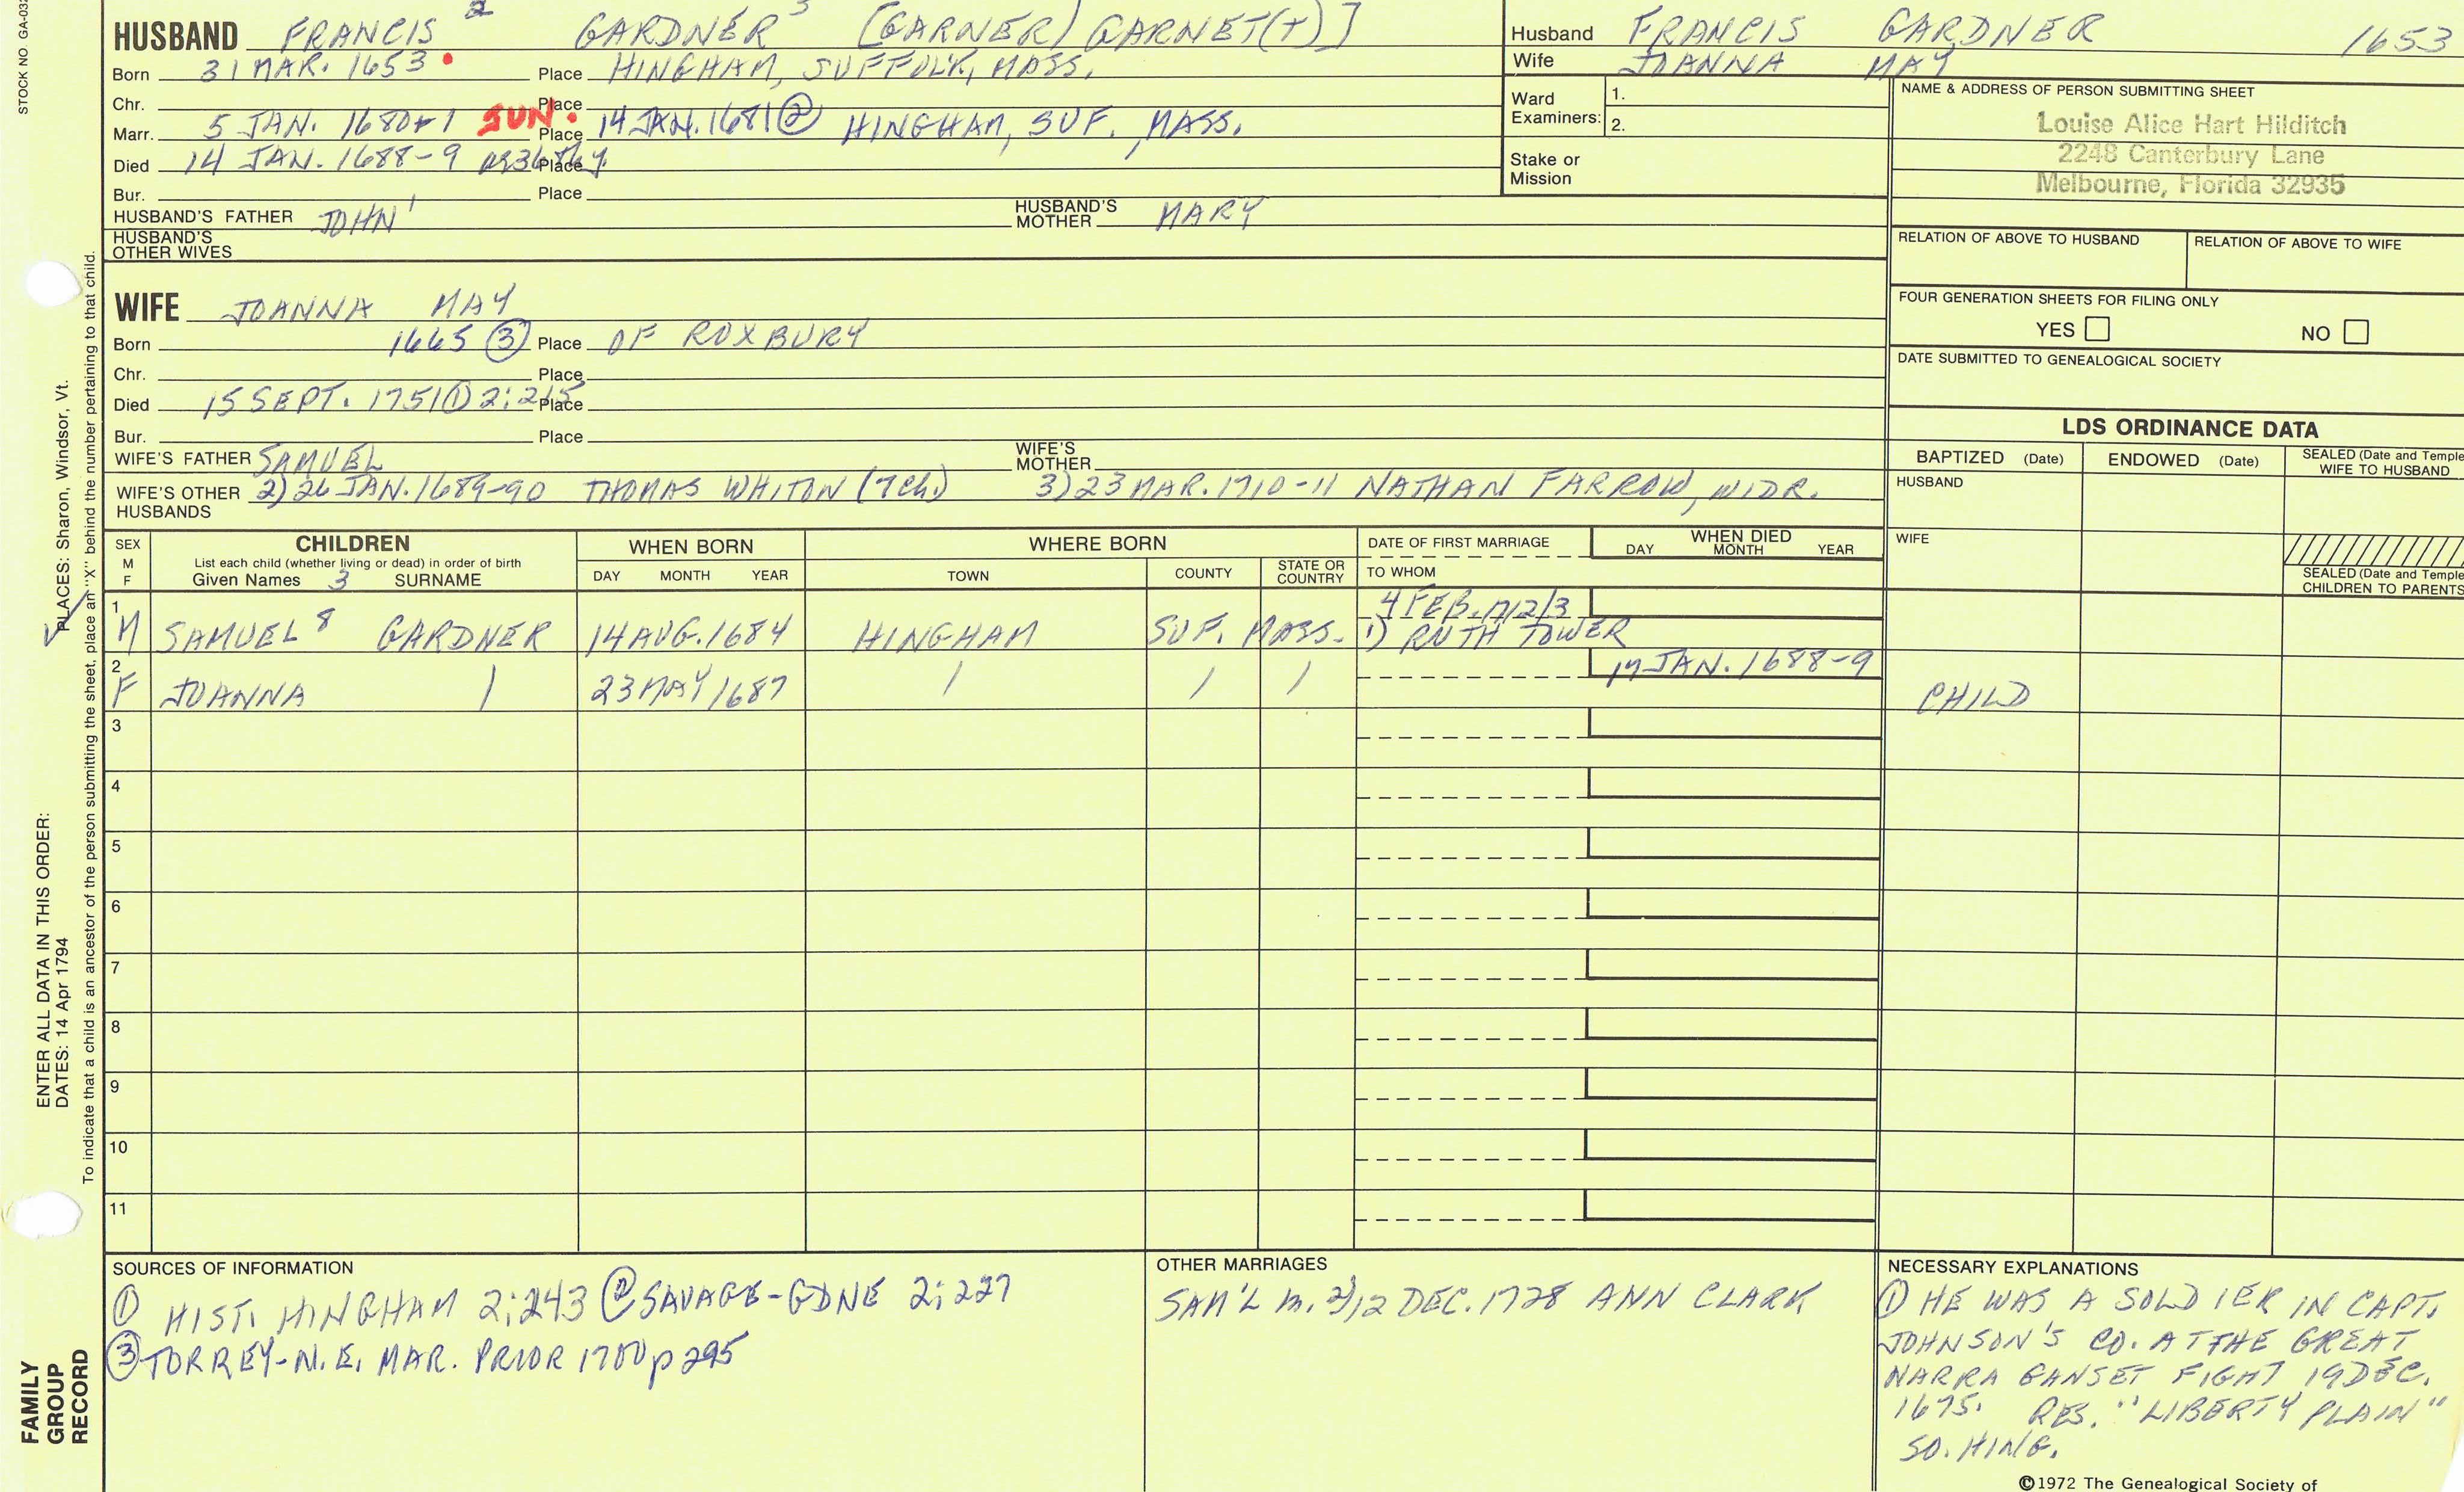 STOCK NO. GA-03
HUSBAND FRANCIS 2 GARDNER [GARNER) GARNET(T)]
Born 31 MAR. 1653 Place HINGHAM, SUFFOLK, MASS.
Chr. Place
Marr. 5 JAN. 1680-1 SUN. Place 14 JAN. 1681 ② HINGHAM, SUF. MASS.
Died 14 JAN. 1688-9 Place
Bur. Place
HUSBAND'S FATHER JOHN 1 HUSBAND'S MOTHER MARY
HUSBAND'S OTHER WIVES
Husband FRANCIS GARDNER 1653
Wife JOANNA MAY
Ward Examiners: 1.
2.
Stake or Mission
NAME & ADDRESS OF PERSON SUBMITTING SHEET
Louise Alice Hart Hilditch
2248 Canterbury Lane
Melbourne, Florida 32935
RELATION OF ABOVE TO HUSBAND RELATION OF ABOVE TO WIFE
FOUR GENERATION SHEETS FOR FILING ONLY
YES NO
DATE SUBMITTED TO GENEALOGICAL SOCIETY
WIFE JOANNA MAY
Born 1665 ③ Place OF ROXBURY
Chr. Place
Died 15 SEPT. 1751 ① 2:215 Place
Bur. Place
WIFE'S FATHER SAMUEL WIFE'S MOTHER
WIFE'S OTHER HUSBANDS 2) 26 JAN. 1689-90 THOMAS WHITON (7 CH.) 3) 23 MAR. 1710-11 NATHAN FARROW, WIDR.
LDS ORDINANCE DATA
BAPTIZED (Date) ENDOWED (Date) SEALED (Date and Temple
WIFE TO HUSBAND
HUSBAND
WIFE
SEALED (Date and Temple
CHILDREN TO PARENTS
SEX M F CHILDREN WHEN BORN WHERE BORN DATE OF FIRST MARRIAGE WHEN DIED
List each child (whether living or dead) in order of birth
Given Names 3 SURNAME DAY MONTH YEAR TOWN COUNTY STATE OR COUNTRY TO WHOM DAY MONTH YEAR
4 FEB. 1712/3
1 M SAMUEL 8 GARDNER 14 AUG. 1684 HINGHAM SUF. MASS. 1) RUTH TOWER
17 JAN. 1688-9
2 F JOANNA / 23 MAY 1687 / / / CHILD
3
4
5
6
7
8
9
10
11
SOURCES OF INFORMATION
① HIST. HINGHAM 2:243 ② SAVAGE-GDNE 2:227
③ TORREY-N.E. MAR. PRIOR 1700 p 295
OTHER MARRIAGES
SAM'L m. 2) 12 DEC. 1728 ANN CLARK
NECESSARY EXPLANATIONS
① HE WAS A SOLDIER IN CAPT.
JOHNSON'S CO. AT THE GREAT
NARRAGANSET FIGHT 19 DEC.
1675. RES. "LIBERTY PLAIN"
SO. HING.
©1972 The Genealogical Society of
PLACES: Sharon, Windsor, Vt.
To indicate that a child is an ancestor of the person submitting the sheet, place an "X" behind the number pertaining to that child.
ENTER ALL DATA IN THIS ORDER:
DATES: 14 Apr 1794
FAMILY
GROUP
RECORD